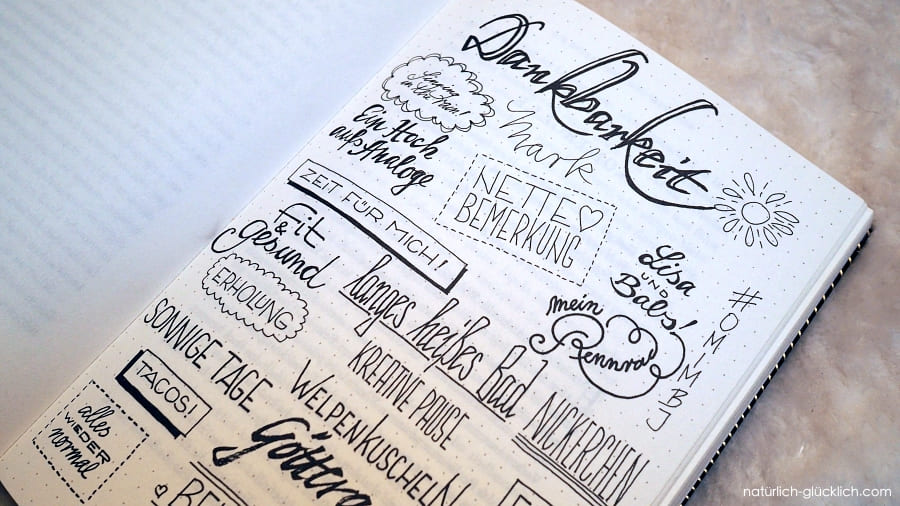 Dankbarkeit
Singing
in the Rain
Mark
Ein Hoch
aufs Analoge
NETTE
BEMERKUNG
ZEIT FÜR MICH!
Fit
&
gesund
Lisa
UND
Babs!
#OMIMBJ
ERHOLUNG
langes heißes Bad
mein
Rennrad
SONNIGE TAGE
KREATIVE PAUSE
NICKERCHEN
TACOS!
WELPENKUSCHELN
alles
WIEDER
normal
natürlich-glücklich.com